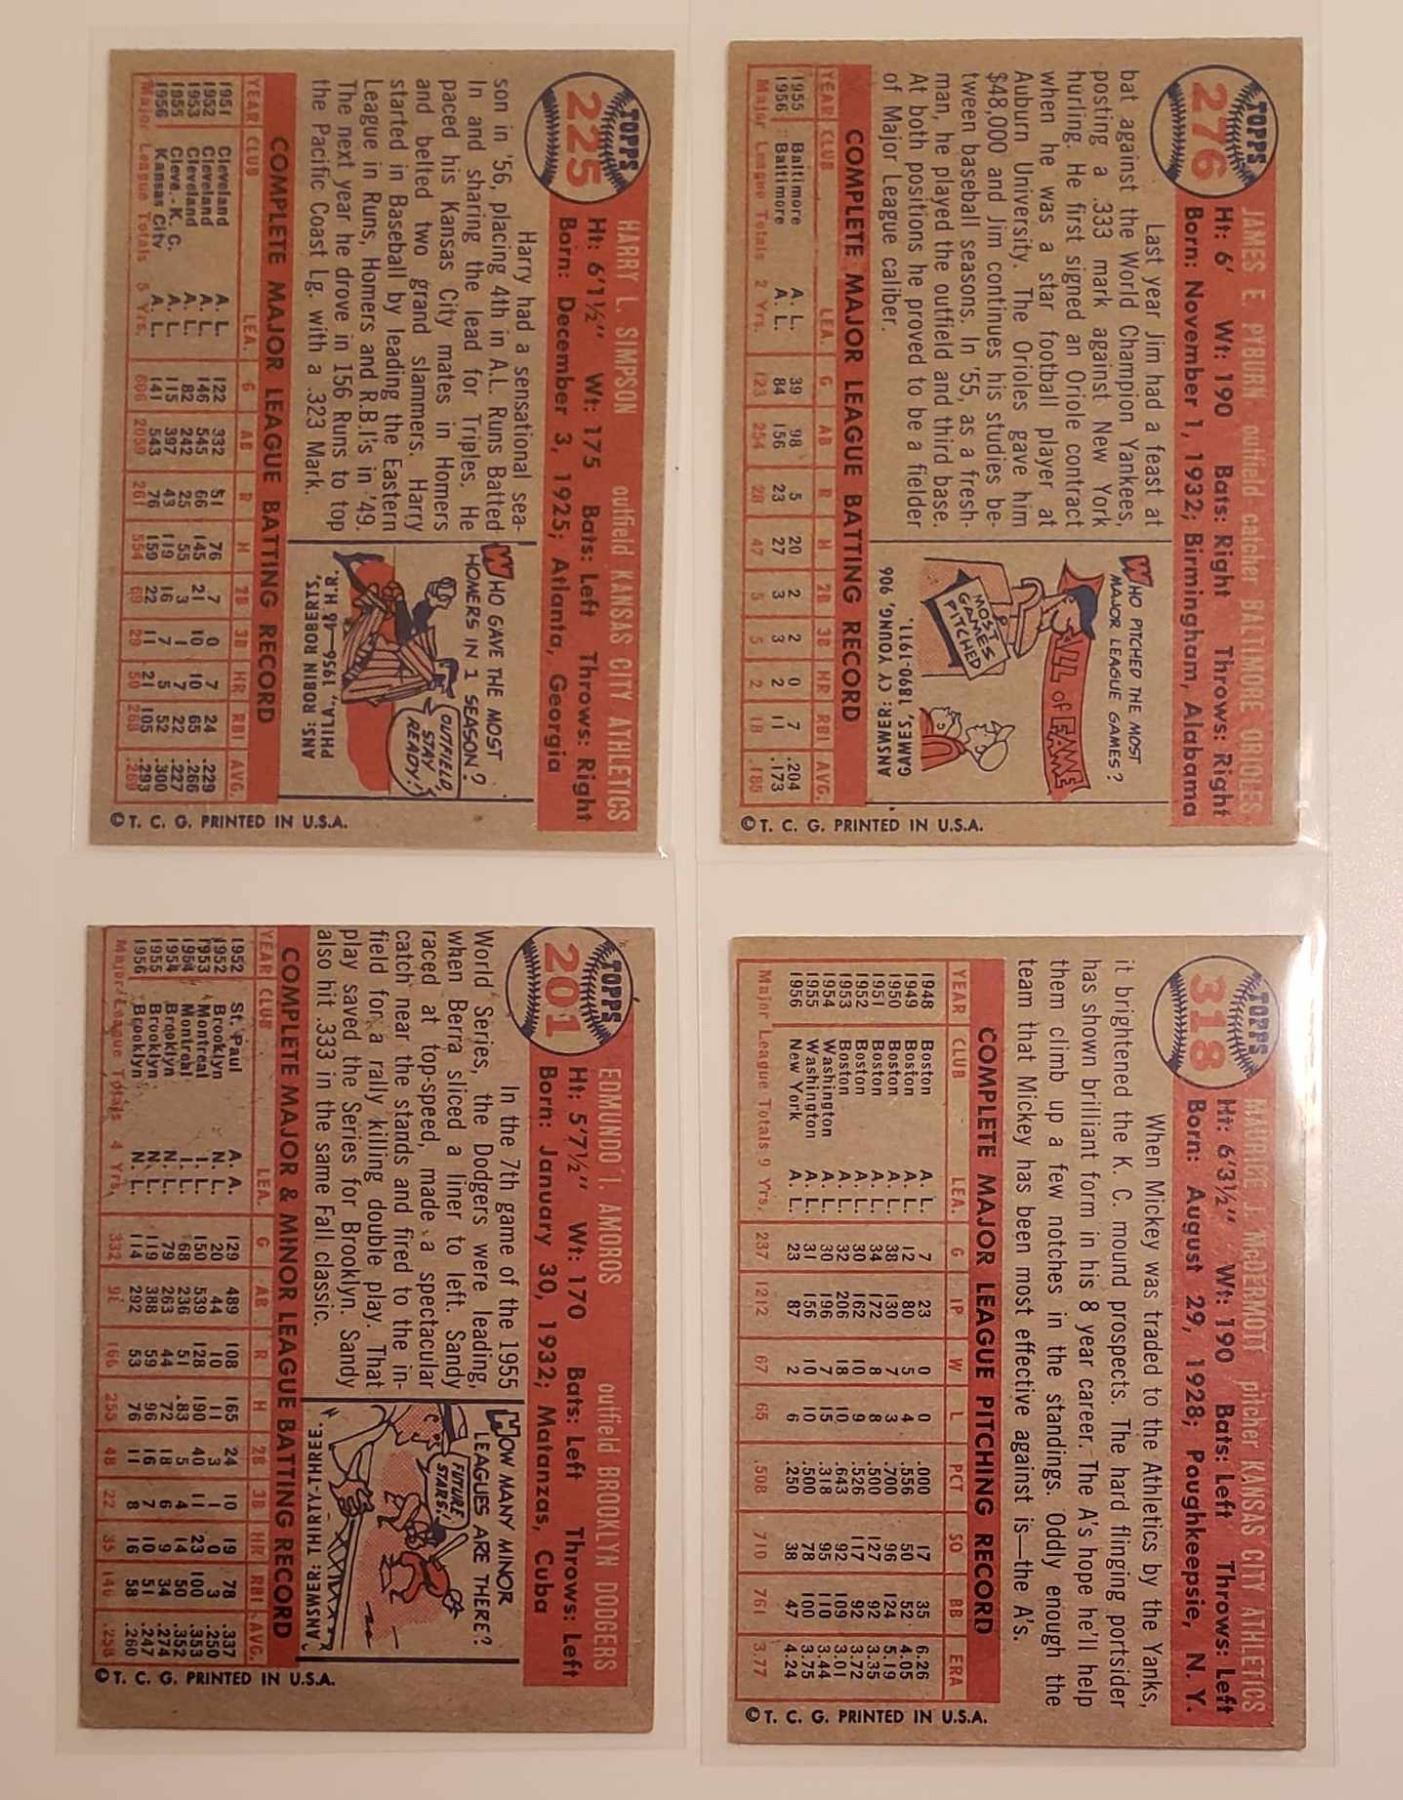 TOPPS
225
HARRY L. SIMPSON
outfield KANSAS CITY ATHLETICS
Ht: 6'1½" Wt: 175 Bats: Left Throws: Right
Born: December 3, 1925; Atlanta, Georgia
Harry had a sensational sea-
son in '56, placing 4th in A.L. Runs Batted
In and sharing the lead for Triples. He
paced his Kansas City mates in Homers
and belted two grand slammers. Harry
started in Baseball by leading the Eastern
League in Runs, Homers and R.B.I's in '49.
The next year he drove in 156 Runs to top
the Pacific Coast Lg. with a .323 Mark.
WHO GAVE THE MOST
HOMERS IN 1 SEASON?
OUTFIELD,
STAY
READY!
ANS: ROBIN ROBERTS,
PHILA., 1956—46 H.R.
COMPLETE MAJOR LEAGUE BATTING RECORD
YEAR CLUB LEA. G AB R H 2B 3B HR RBI AVG.
1951 Cleveland A. L. 122 332 51 76 7 0 7 24 .229
1952 Cleveland A. L. 146 545 66 145 21 10 10 65 .266
1953 Cleveland A. L. 82 242 25 55 3 1 7 22 .227
1955 Cleve.-K. C. A. L. 115 397 43 119 16 7 5 52 .300
1956 Kansas City A. L. 141 543 76 159 22 11 21 105 .293
Major League Totals 5 Yrs. 606 2059 261 554 69 29 50 268 .269
©T. C. G. PRINTED IN U.S.A.
TOPPS
276
JAMES E. PYBURN outfield catcher BALTIMORE ORIOLES
Ht: 6' Wt: 190 Bats: Right Throws: Right
Born: November 1, 1932; Birmingham, Alabama
Last year Jim had a feast at
bat against the World Champion Yankees,
posting a .333 mark against New York
hurling. He first signed an Oriole contract
when he was a star football player at
Auburn University. The Orioles gave him
$48,000 and Jim continues his studies be-
tween baseball seasons. In '55, as a fresh-
man, he played the outfield and third base.
At both positions he proved to be a fielder
of Major League caliber.
WHO PITCHED THE MOST
MAJOR LEAGUE GAMES?
HALL OF FAME
MOST
GAMES
PITCHED
ANSWER: CY YOUNG, 906
GAMES, 1890-1911.
COMPLETE MAJOR LEAGUE BATTING RECORD
YEAR CLUB LEA. G AB R H 2B 3B HR RBI AVG.
1955 Baltimore A. L. 39 98 5 20 2 2 0 7 .204
1956 Baltimore A. L. 84 156 23 27 3 3 2 11 .173
Major League Totals 2 Yrs. 123 254 28 47 5 5 2 18 .185
©T. C. G. PRINTED IN U.S.A.
TOPPS
201
EDMUNDO I. AMOROS
outfield BROOKLYN DODGERS
Ht: 5'7½" Wt: 170 Bats: Left Throws: Left
Born: January 30, 1932; Matanzas, Cuba
In the 7th game of the 1955
World Series, the Dodgers were leading,
when Berra sliced a liner to left. Sandy
raced at top-speed, made a spectacular
catch near the stands and fired to the in-
field for a rally killing double play. That
play saved the Series for Brooklyn. Sandy
also hit .333 in the same Fall classic.
HOW MANY MINOR
LEAGUES ARE THERE?
FUTURE
STARS!
ANSWER: THIRTY-THREE.
COMPLETE MAJOR & MINOR LEAGUE BATTING RECORD
YEAR CLUB LEA. G AB R H 2B 3B HR RBI AVG.
1952 St. Paul A. A. 129 489 108 165 24 10 19 78 .337
1952 Brooklyn N. L. 20 44 10 11 3 1 0 3 .250
1953 Montreal I. L. 150 539 128 190 40 11 23 100 .353
1954 Montreal I. L. 68 236 51 83 5 4 14 50 .352
1954 Brooklyn N. L. 79 263 44 72 18 6 9 34 .274
1955 Brooklyn N. L. 119 388 59 96 16 7 10 51 .247
1956 Brooklyn N. L. 114 292 53 76 11 8 16 58 .260
Major League Totals 4 Yrs. 166 255 48 22 35
©T. C. G. PRINTED IN U.S.A.
TOPPS
318
MAURICE J. McDERMOTT pitcher KANSAS CITY ATHLETICS
Ht: 6'3½" Wt: 190 Bats: Left Throws: Left
Born: August 29, 1928; Poughkeepsie, N. Y.
When Mickey was traded to the Athletics by the Yanks,
it brightened the K. C. mound prospects. The hard flinging portsider
has shown brilliant form in his 8 year career. The A's hope he'll help
them climb up a few notches in the standings. Oddly enough the
team that Mickey has been most effective against is—the A's.
COMPLETE MAJOR LEAGUE PITCHING RECORD
YEAR CLUB LEA. G IP W L PCT SO BB ERA
1948 Boston A. L. 7 23 0 0 .000 17 35 6.26
1949 Boston A. L. 12 80 5 4 .556 50 52 4.05
1950 Boston A. L. 38 130 7 3 .700 96 124 5.19
1951 Boston A. L. 34 172 8 8 .500 127 92 3.35
1952 Boston A. L. 30 162 10 9 .526 117 92 3.72
1953 Boston A. L. 32 206 18 10 .643 92 109 3.01
1954 Washington A. L. 30 196 7 15 .318 95 110 3.44
1955 Washington A. L. 31 156 10 10 .500 78 100 3.75
1956 New York A. L. 23 87 2 6 .250 38 47 4.24
Major League Totals 9 Yrs. 237 1212 67 65 .508 710 761 3.77
©T. C. G. PRINTED IN U.S.A.